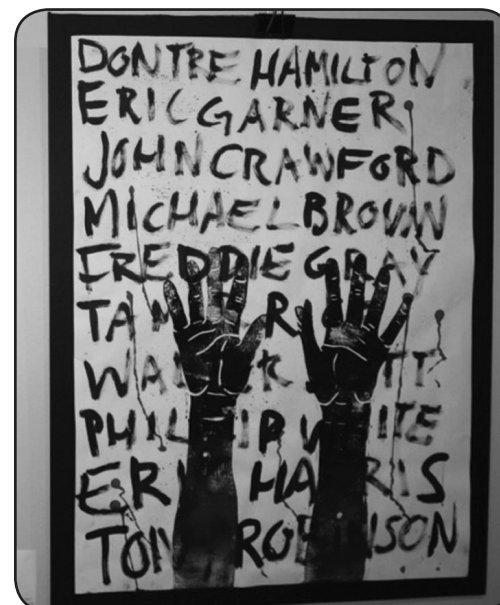 DONTRE HAMILTON
ERIC GARNER
JOHN CRAWFORD
MICHAEL BROWN
FREDDIE GRAY
PHILLIP
ERIC HARRIS
TONY ROBINSON